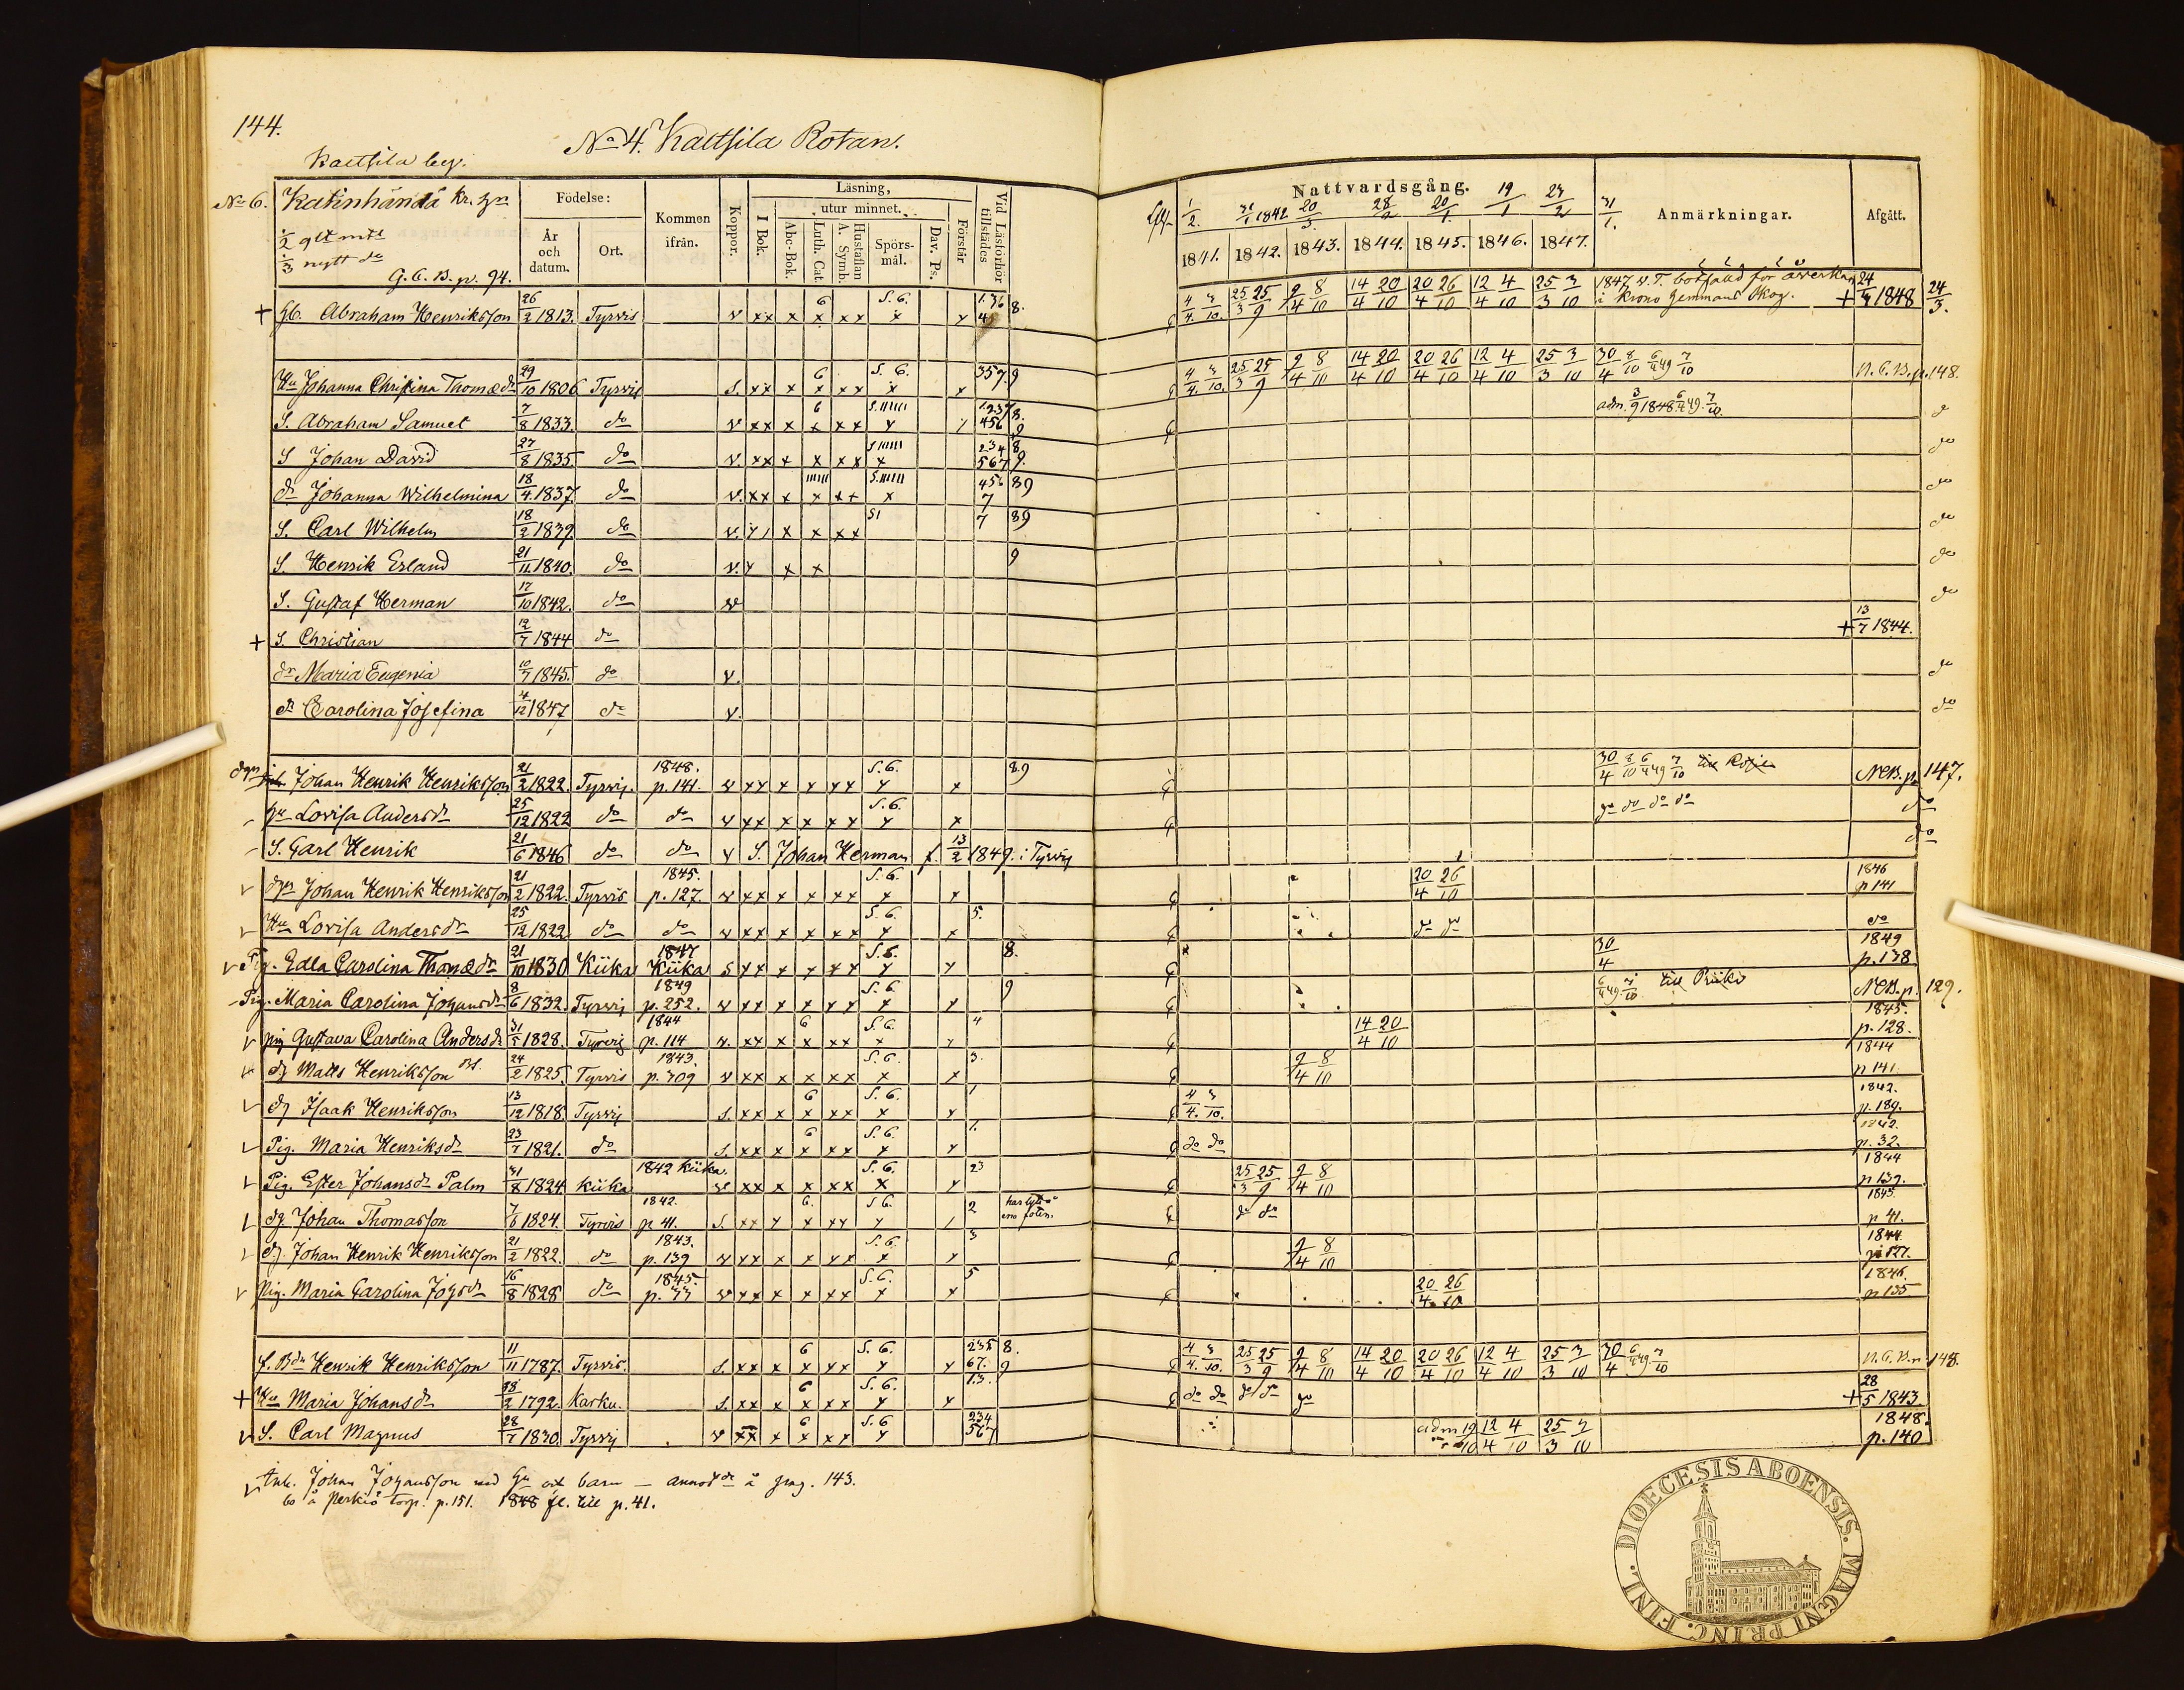 144.
No 4. Kaltsila Rotan.
Kaltsila by.
No 6. Katinhändä Kr. hn
1/2 glt mtl
1/3 nytt do
G. C. B. p. 94.
Födelse: År och datum. Ort. Kommen ifrån. Koppor. Läsning, I Bok. utur minnet. Abc-Bok. Luth. Cat. Hustaflan A. Symb. Spörs-mål. Dav. Ps. Förstår Vid Läsförhör tillstädes
Nattvardsgång. Anmärkningar. Afgått.
1/2. 31/1 1842 20/3 28/2 20/1 19/1 23/2 31/1.
1841. 1842. 1843. 1844. 1845. 1846. 1847.
+ Gb. Abraham Henriksson 26/2 1813. Tyrvis v xx x x xx x 6 S. 6. 8. 4/4. 3/10. 25/3 25/9 9/4 8/10 14/4 20/10 20/4 26/10 12/4 4/10 25/3 3/10 1847 v. T. botfälld för åverkan i Krono Gemmans Skog. + 24/3 1848 24/3.
Hu Johanna Christina Thomædr 29/10 1806 Tyrvis S. xx x x xx x 6 S. 6. 357. 9 4/4. 3/10. 25/3 25/9 9/4 8/10 14/4 20/10 20/4 26/10 12/4 4/10 25/3 3/10 30/4 8/10 6/4 49 7/10 N. C. B. p. 148.
S. Abraham Samuel 7/8 1833. do v xx x x xx 6 1.237 456 8. 9 adm. 3/9 1848 6/4 49. 7/10.
S Johan David 27/8 1835. do v. xx x x xx x 234 567 8 9. do
dr Johanna Wilhelmina 18/4. 1837. do v. xx x x xx x 456 7 89 do
S. Carl Wilhelm 18/2 1839 do v. x x xx S1 7 89 do
S. Henrik Erland 21/11. 1840. do v. x x 9 do
S. Gustaf Herman 17/10 1842. do v do
+ S. Christian 12/7 1844 do + 13/7 1844.
dr Maria Eugenia 10/7 1845. do v. do
dr Carolina Josefina 4/12 1847 do v. do
dgn Johan Henrik Henriksson 21/2 1822. Tyrvis. 1848. p. 141. v xx x x xx S. 6. x 8.9 30/4 8/10 6/4 49 7/10 N C B. p. 147.
hu Lovisa Andersdr 25/12 1822 do do v xx x x xx S. 6. x do do do do do
S. Carl Henrik 21/6 1846 do do v S. Johan Herman f. 13/2 1849. i Tyrvis do
v dgn Johan Henrik Henriksson 21/2 1822. Tyrvis 1845. p. 127. v xx x x xx S. 6. x 20/4 26/10 1846 p 141
v Hu Lovisa Andersdr 25/12 1822 do do v xx x x xx S. 6. x 5. do do do
v Pig. Edla Carolina Thomædr 21/10 1830 Kiika 1847 Kiika S xx x x xx x 8. 30/4 1849 p. 138
Pig. Maria Carolina Johansdr 8/6 1832. Tyrvis 1849 p. 252. v xx x x xx S. 6 x 9 6/4 49. 7/10 N C B. p. 129.
v pig Gustava Carolina Andersdr 31/5 1828. Tyrvis 1844 p. 114 v. xx x x xx x 6 S. 6. 4 14/4 20/10 1845. p. 128.
v dg Matts Henriksson 24/2 1825. Tyrvis 1843. p. 309 v xx x x xx x S. 6. 3. 9/4 8/10 1844 p 141.
v dg Isaak Henriksson 13/12 1818. Tyrvis S. xx x x xx x 6 S. 6. 1 4/4. 3/10. 1842. p. 189.
v Pig. Maria Henriksdr 23/7 1821. do S. xx x x xx 6 S. 6. 1. do do 1842. p. 32.
v Pig. Ester Johansdr Palm 31/8 1824 Kiika 1842 Kiika. v xx x x xx x S. 6. 23 25/3 25/9 9/4 8/10 1844 p 139.
v dg Johan Thomasson 7/6 1824. Tyrvis 1842. p 41. S. xx x xx 6. S 6. 2 har lyte om foten. do do 1843. p 41.
v dg. Johan Henrik Henriksson 21/2 1822. do 1843. p. 139 v xx x x xx x S. 6. 3 9/4 8/10 1844. p 127.
v Pig. Maria Carolina Johsdr 16/8 1828 do 1845. p. 33 v xx x x xx x S. 6. 5 20/4. 26/10 1846. p 135
f. Bdn Henrik Henriksson 11/11 1787. Tyrvis. S. xx x x xx 6 S. 6. 235 67. 8. 9 4/4. 3/10. 25/3 25/9 9/4 8/10 14/4 20/10 20/4 26/10 12/4 4/10 25/3 3/10 30/4 6/4 49 7/10 N. C. B. p. 148.
+ Hu Maria Johansdr 28/2 1792. Karku. S. xx x x xx 6 S. 6. 13. do do do do do + 28/5 1843.
v S. Carl Magnus 28/7 1830. Tyrvis v xx x x xx 6 S. 6 234 567 adm 19/10 12/4 4/10 25/3 3/10 1848. p. 140
v Johan Johansson med hu och barn — annot de å pag. 143.
bo å Perkiö torp. p. 151. 1848 fl. till p. 41.
DIOECESIS ABOENSIS. MAGNI PRINC. FINL.